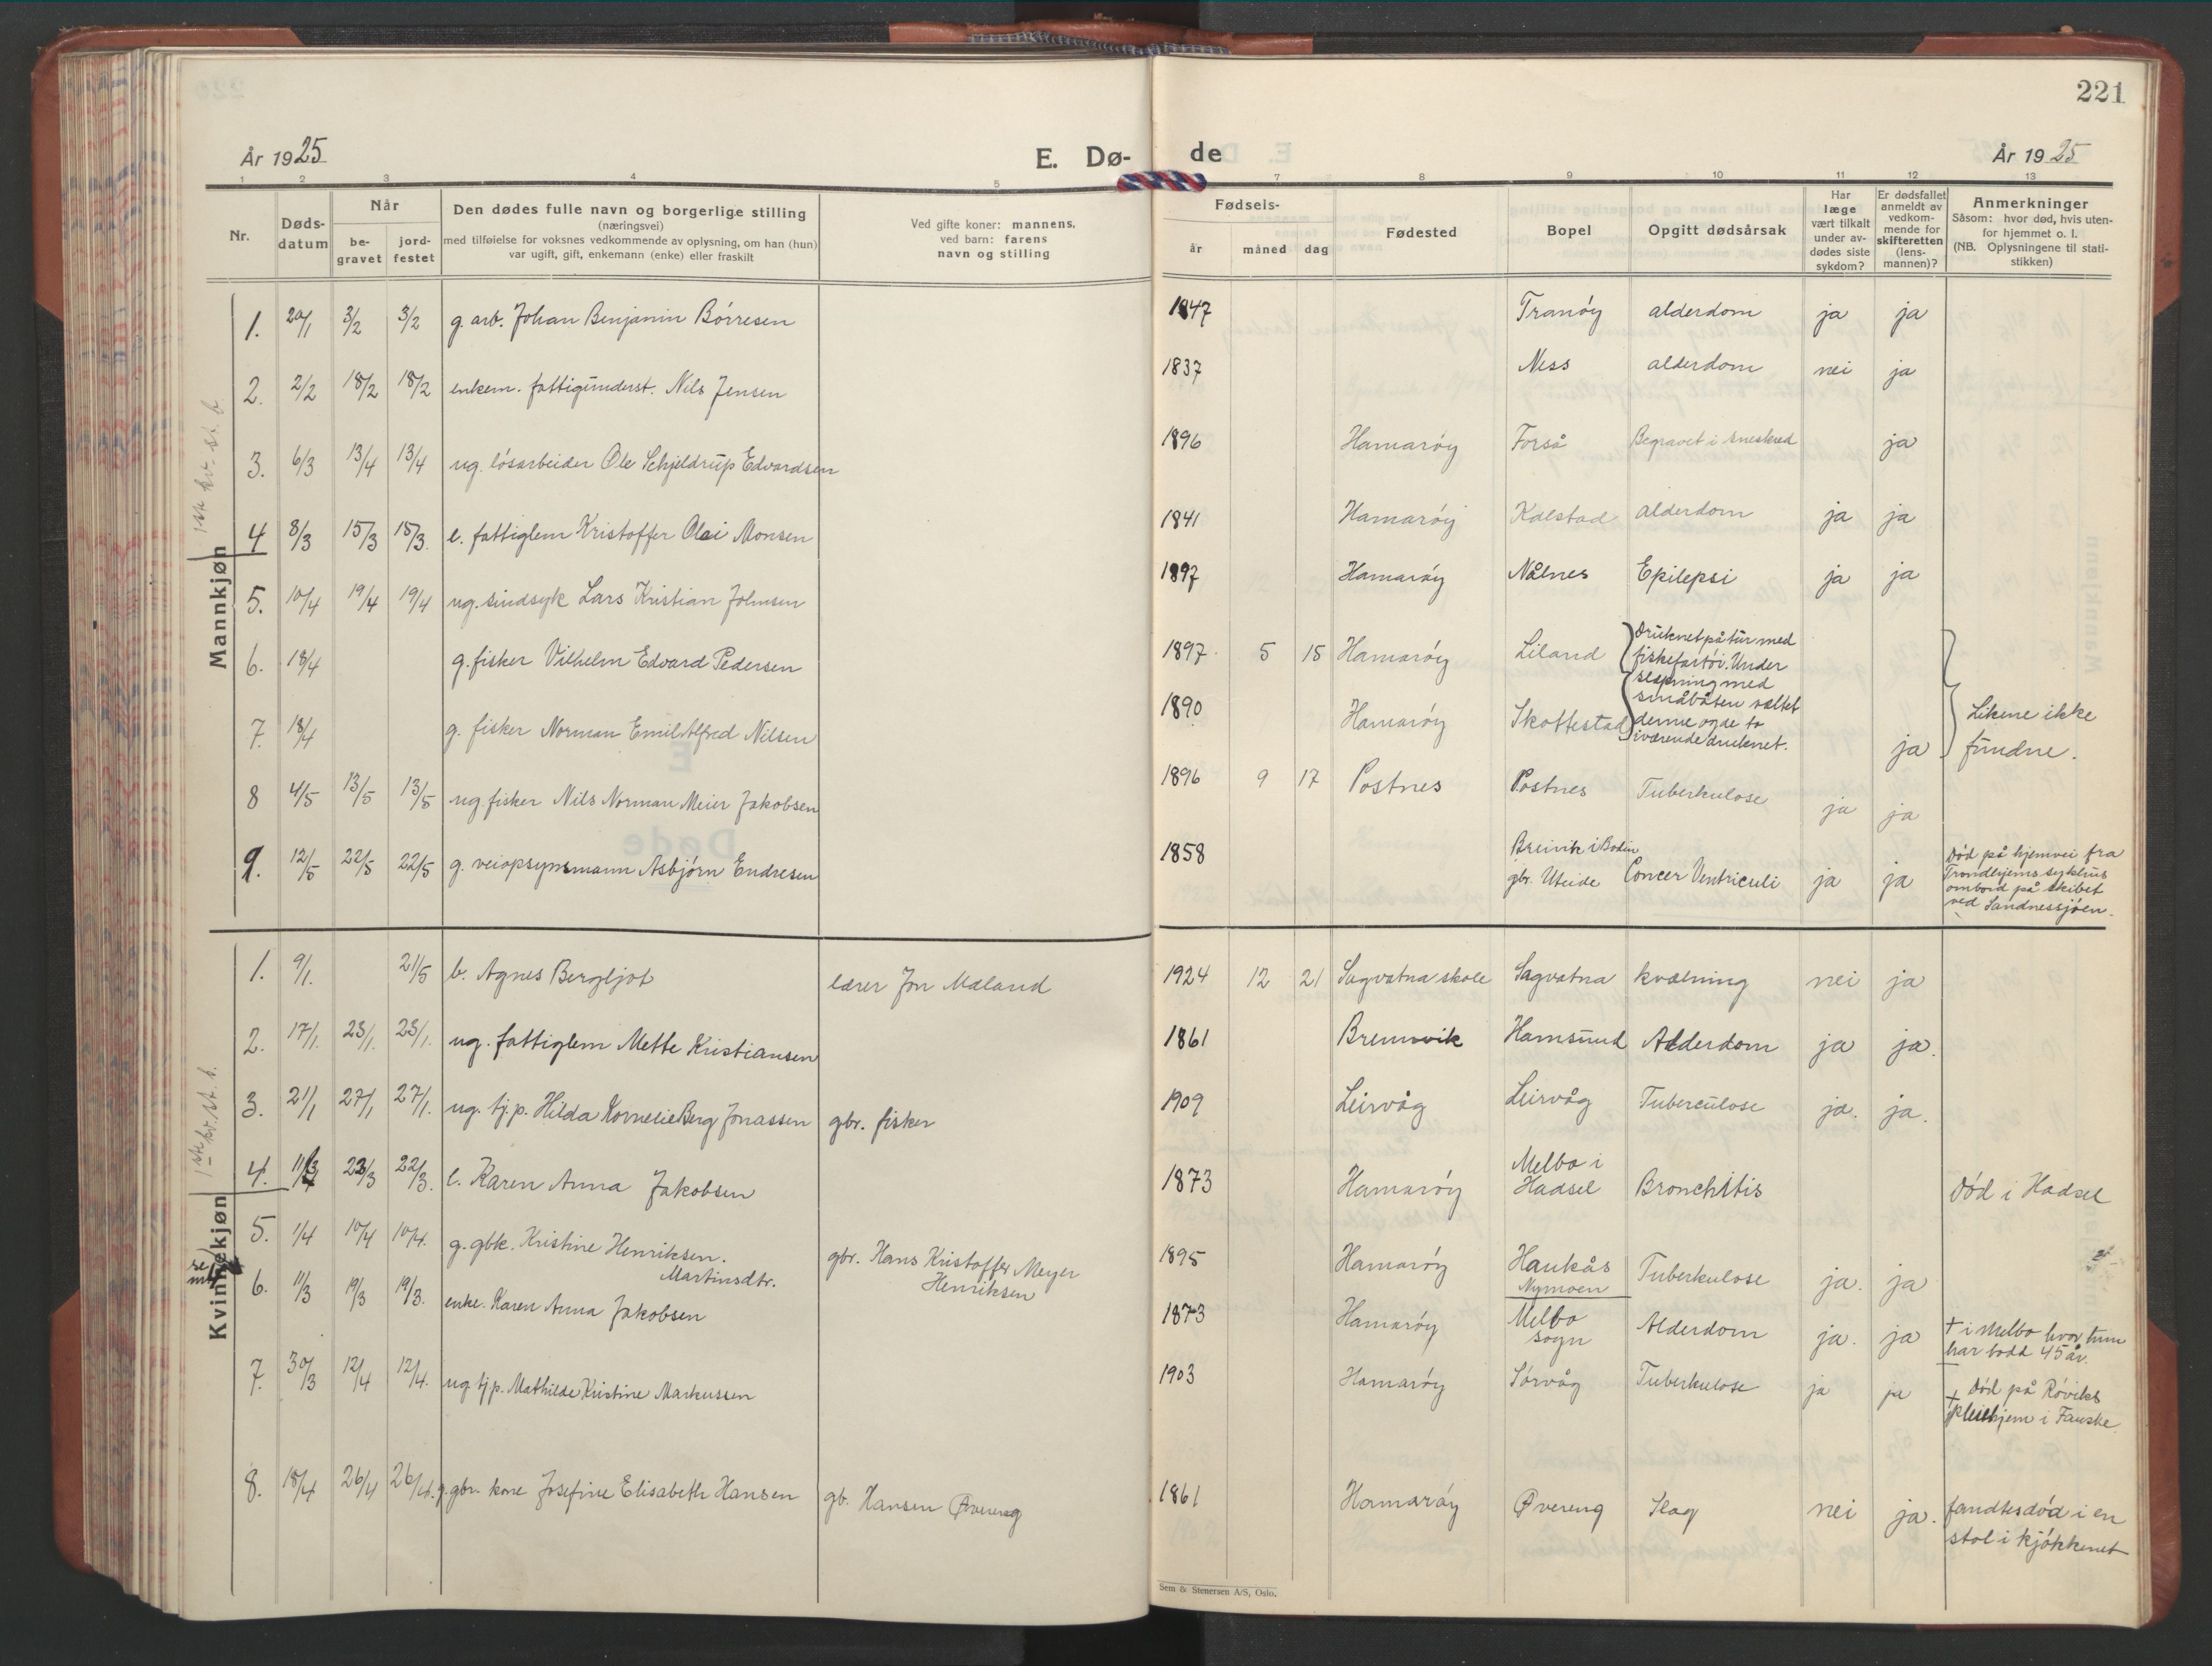 221
År 1925
E. Dø-
de
År 1925
1 2 3 4 5 7 8 9 10 11 12 13
Nr.
Døds-
datum
Når
be-
gravet
jord-
festet
Den dødes fulle navn og borgerlige stilling
(næringsvei)
med tilføielse for voksnes vedkommende av oplysning, om han (hun)
var ugift, gift, enkemann (enke) eller fraskilt
Ved gifte koner: mannens,
ved barn: farens
navn og stilling
Fødsels-
år måned dag
Fødested
Bopel
Opgitt dødsårsak
Har
læge
vært tilkalt
under av-
dødes siste
sykdom?
Er dødsfallet
anmeldt av
vedkom-
mende for
skifteretten
(lens-
mannen)?
Anmerkninger
Såsom: hvor død, hvis uten-
for hjemmet o. l.
(NB. Oplysningene til stati-
stikken)
Mannkjøn
1. 20/1 3/2 3/2 g. arb. Johan Benjamin Börresen 1847 Tranöy alderdom ja ja
2. 2/2 18/2 18/2 enkem. fattigunderst. Nils Jensen 1837 Ness alderdom nei ja
3. 6/3 13/4 13/4 ug. lösarbeider Ole Schjeldrup Edvardsen 1896 Hamaröy Forså Begravet i sneskred ja
4 8/3 15/3 15/3. e. fattiglem Kristoffer Olai Monsen 1841 Hamaröy Kalstad alderdom ja ja
5. 10/4 19/4 19/4 ug. sindsyk Lars Kristian Johnsen 1897 Hamaröy Nålnes Epilepsi ja ja
6. 18/4 g. fisker Vilhelm Edvard Pedersen 1897 5 15 Hamaröy Liland
druknet på tur med
fiskefartöi. Under
småbåten væltet
denne og de to
iværende druknet.
7. 18/4 g. fisker Norman Emil Alfred Nilsen 1890 Hamaröy Skottestad ja
Likene ikke
fundne.
8 4/5 13/5 13/5 ug. fisker Nils Norman Meier Jakobsen 1896 9 17 Postnes Postnes Tuberkulose ja ja
9. 12/5 22/5 22/5 g. veiopsynsmann Asbjörn Endresen 1858
Breivik i Bodin
gbr. Uteide Cancer Ventriculi ja ja
Död på hjemvei fra
Trondhjems sykehus
ombord på skibet
ved Sandnessjöen.
Kvinnekjøn
1. 9/1. 21/5 b. Agnes Bergljot lærer Jon Mæland 1924 12 21 Sagvatna skole Sagvatna kvælning nei ja
2. 17/1. 23/1. 23/1. ug. fattiglem Mette Kristiansen 1861 Bremvik Hamsund Alderdom ja ja.
3. 21/1 27/1 27/1. ug. tj.p. Hilda Kornelie Berg Jonassen gbr. fisker 1909 Leirvåg Leirvåg Tuberculose ja. ja.
4. 22/3. e. Karen Anna Jakobsen 1873 Hamaröy
Melbo i
Hadsel Bronchitis död i Hadsel
5. 1/4 10/4 10/4. g. gbk. Kristine Henriksen.
Martinsdtr.
gbr. Hans Kristoffer Meyer
Henriksen
1895 Hamaröy Haukås
Nymoen
Tuberkulose ja. ja
6. 11/3 19/3 19/3. enke. Karen Anna Jakobsen 1873 Hamaröy Melbo
sogn
Alderdom ja. ja
+ i Melbo hvor hun
har bodd 45 år.
7. 30/3 12/4 12/4. ug tj.p. Mathilde Kristine Markussen 1903 Hamaröy Sörvåg Tuberkulose ja ja
+ död på Röviks
pleiehjem i Fauske
8. 18/4 26/4 26/4. g. gbr. kone Josefine Elisabeth Hansen gb. Hansen Övereng 1861 Hamaröy Övereng Slag nei ja.
fandtes död i en
stol i kjökkenet
Sem & Stenersen A/S, Oslo.